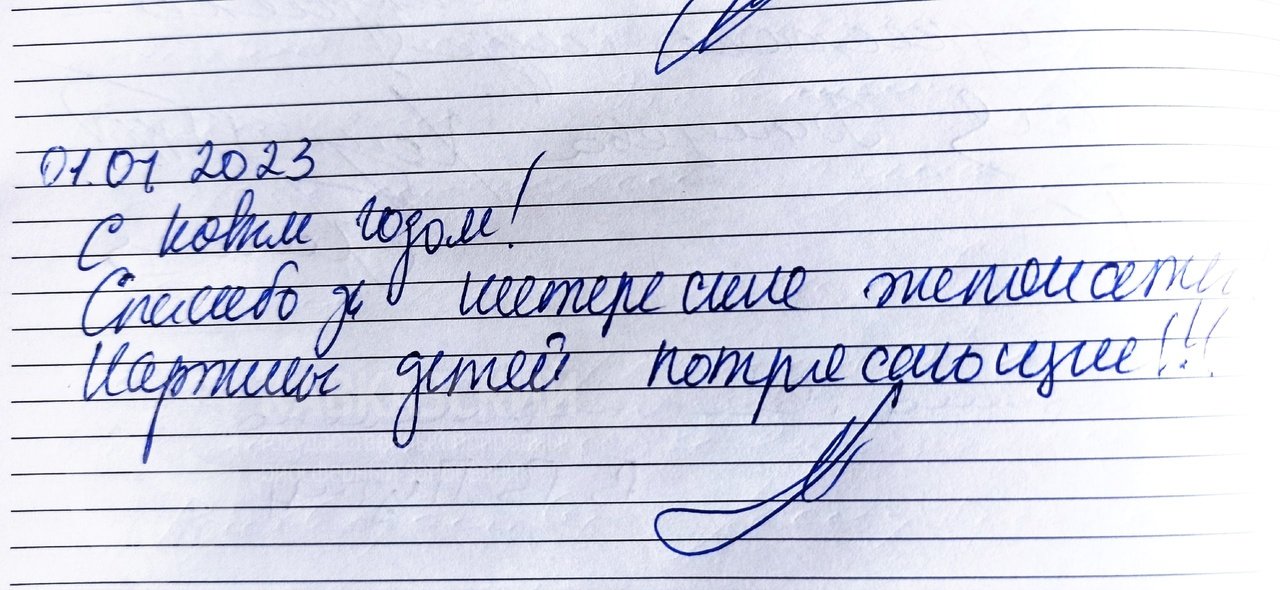 01.01 2023
С новым годом!
Спасибо за интересные экспонаты
Картины детей потрясающие!!!